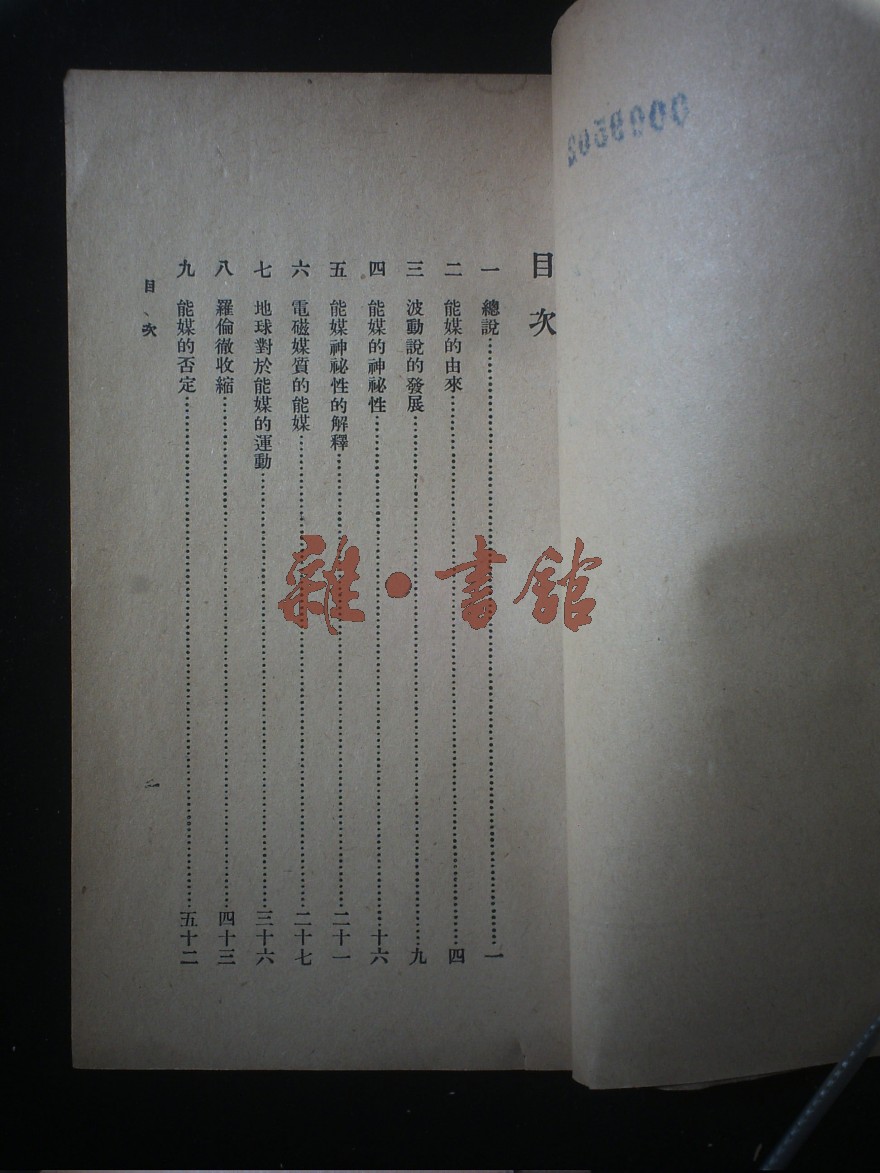 目次
一 總說…………一
二 能媒的由來…………四
三 波動說的發展…………九
四 能媒的神祕性…………十六
五 能媒神祕性的解釋…………二十一
六 電磁媒質的能媒…………二十七
七 地球對於能媒的運動…………三十六
八 羅倫徹收縮…………四十三
九 能媒的否定…………五十二
目、次
雜·書館